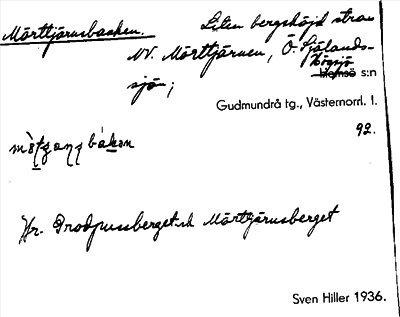 Mörttjärnbacken. Liten bergshöjd strax
NV. Mörttjärnen, Ö. Själands-
sjön; Högsjö
Hemsö s:n
Gudmundrå tg., Västernorrl. l.
92.
Hr. Brodpussberget och Mörttjärnsberget
Sven Hiller 1936.